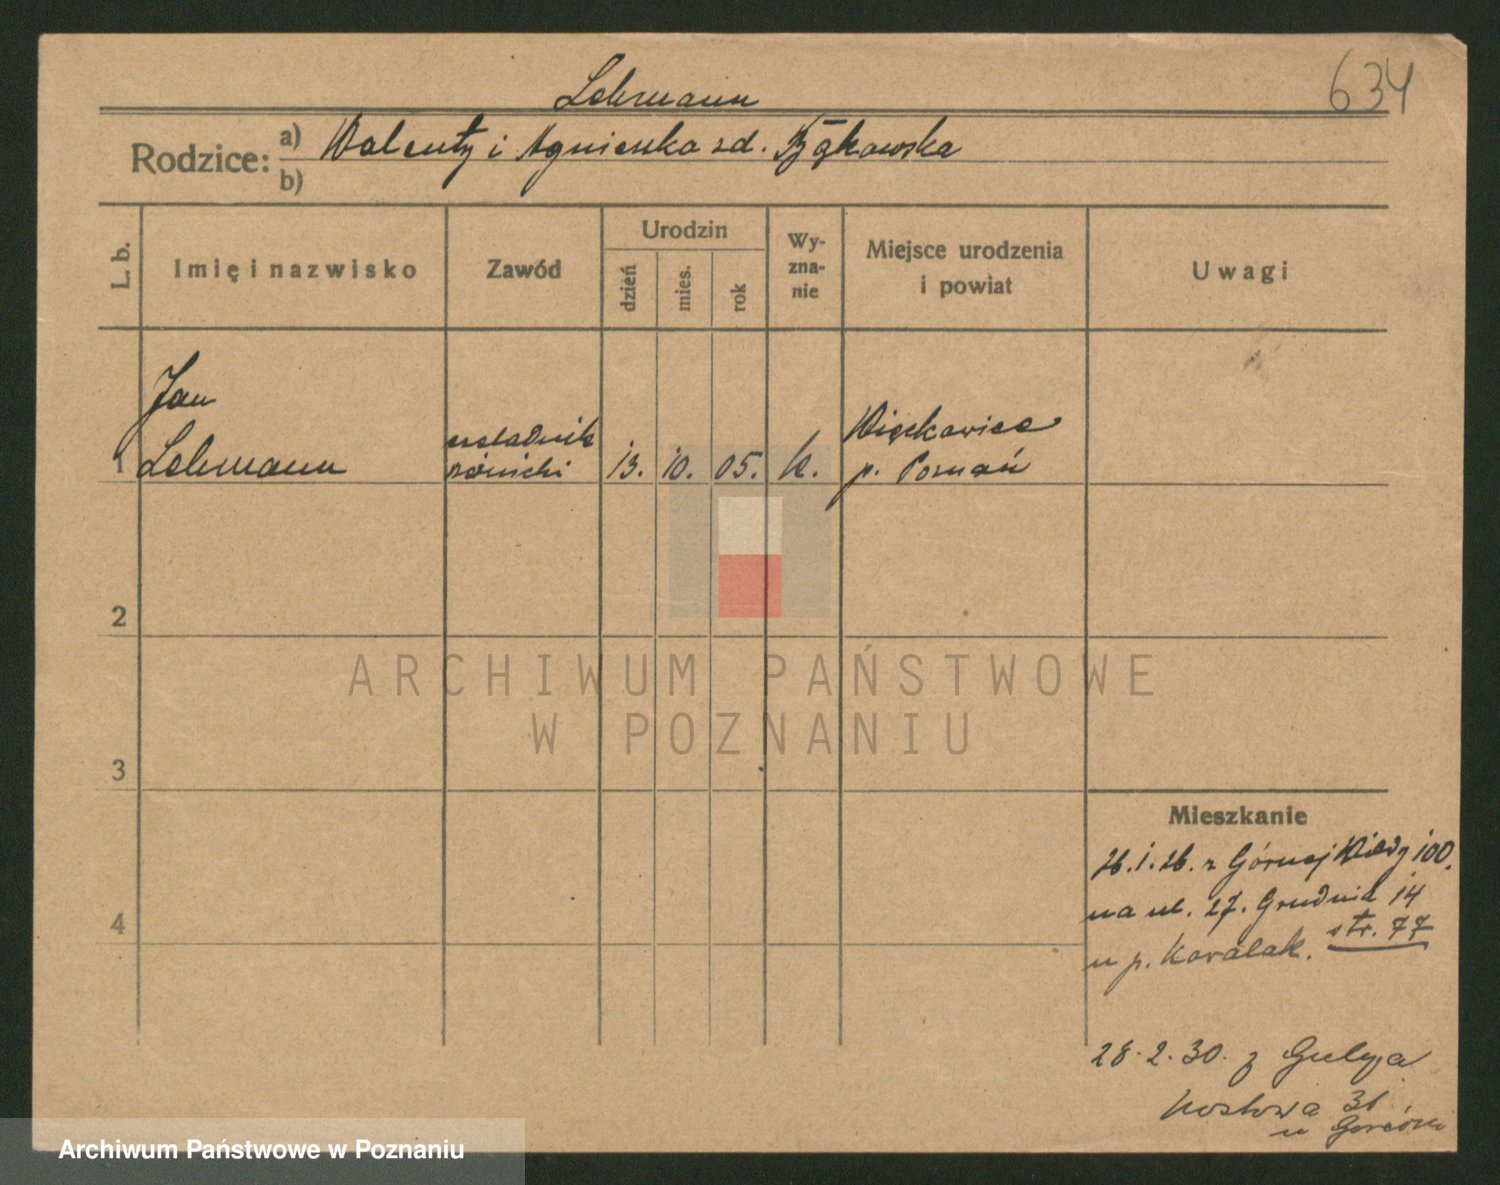 634
Lehmann
Rodzice: a) Walenty i Agnieszka zd. Bąkowska
b)
L. b.
Imię i nazwisko
Zawód
Urodzin
dzień
mies.
rok
Wy-
zna-
nie
Miejsce urodzenia
i powiat
Uwagi
Jan
1 Lehmann
czeladnik
rzeźnicki
13. 10. 05. k.
Więckowice
p. Poznań
2
3
4
ARCHIWUM PAŃSTWOWE
W POZNANIU
Mieszkanie
26.1.26. z Górnej Wildy 100.
na ul. 27. Grudnia 14
str. 77
u p. Kowalak.
28.2.30. z
31
u
Archiwum Państwowe w Poznaniu